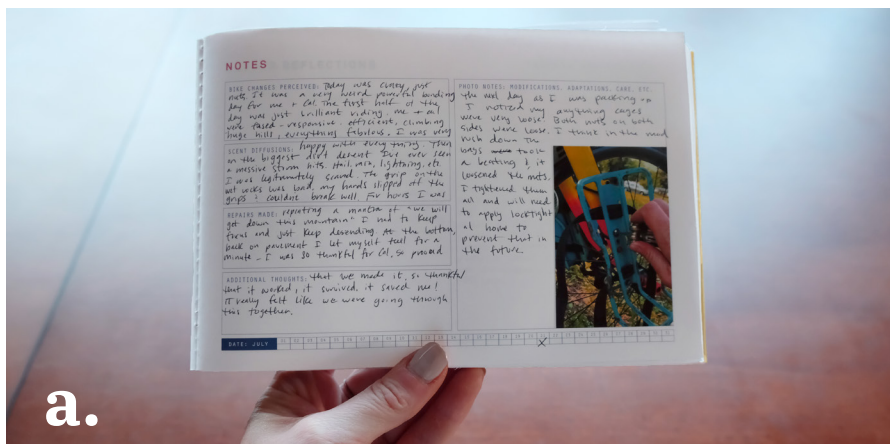 NOTES
BIKE CHANGES PERCEIVED: Today was crazy, just
nuts. It was a very weird powerful bonding
day for me + Cal. The first half of the
day was just brilliant riding. me + Cal
were fused - responsive. efficient, climbing
huge hills, everything fabulous, I was very
SCENT DIFFUSIONS: happy with everything. Then
on the biggest dirt descent I've ever seen
a massive storm hits. Hail, rain, lightning, etc.
I was legitimately scared. The grip on the
wet rocks was bad, my hands slipped off the
grips & couldn't break well. For hours I was
REPAIRS MADE: repeating a mantra of "we will
get down this mountain" I had to keep
focus and just keep descending. At the bottom,
back on pavement I let myself feel for a
minute - I was so thankful for Cal, so proud
ADDITIONAL THOUGHTS: that we made it, so thankful
that it worked, it survived, it saved me!
It really felt like we were going through
this together.
PHOTO NOTES: MODIFICATIONS, ADAPTATIONS, CARE, ETC.
the next day as I was packing up
I noticed my anything cages
were very loose. Both nuts on both
sides were loose. I think in the mad
rush down the
bags took
a beating & it
loosened the nuts.
I tightened them
all and will need
to apply locktight
at home to
prevent that in
the future.
DATE: JULY
X
a.